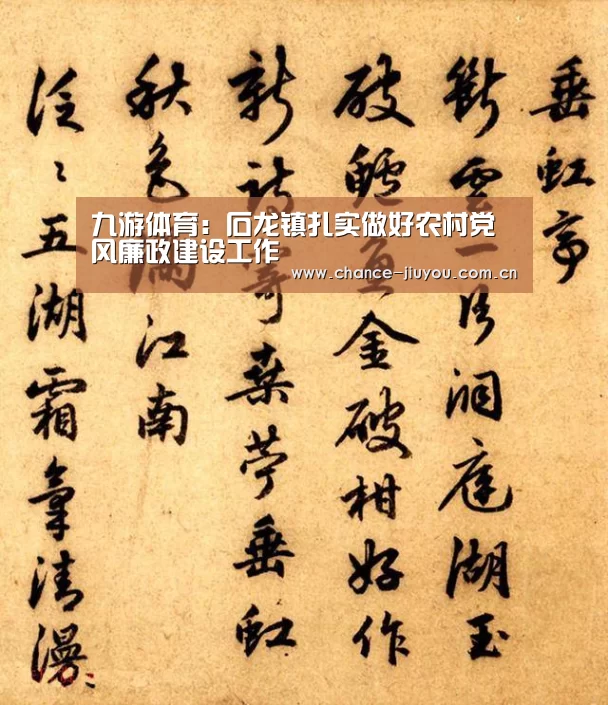 九游体育：石龙镇扎实做好农村党
风廉政建设工作
www.chance-jiuyou.com.cn
垂虹亭
斷雲一片洞庭湖玉
破鱸魚金破柑好作
新詩寄桑苧垂虹
秋色滿江南
泛〻五湖霜氣清漫〻